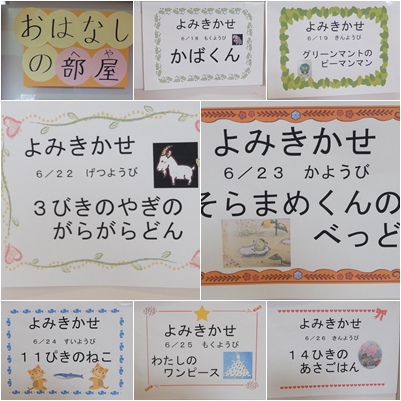 おはなし
の部屋
へや
よみきかせ
6/18 もくようび
かばくん
よみきかせ
6/19 きんようび
グリーンマントの
ピーマンマン
よみきかせ
6/22 げつようび
3びきのやぎの
がらがらどん
よみきかせ
6/23 かようび
そらまめくんの
べっど
よみきかせ
6/24 すいようび
11ぴきのねこ
よみきかせ
6/25 もくようび
わたしの
ワンピース
よみきかせ
6/26 きんようび
14ひきの
あさごはん